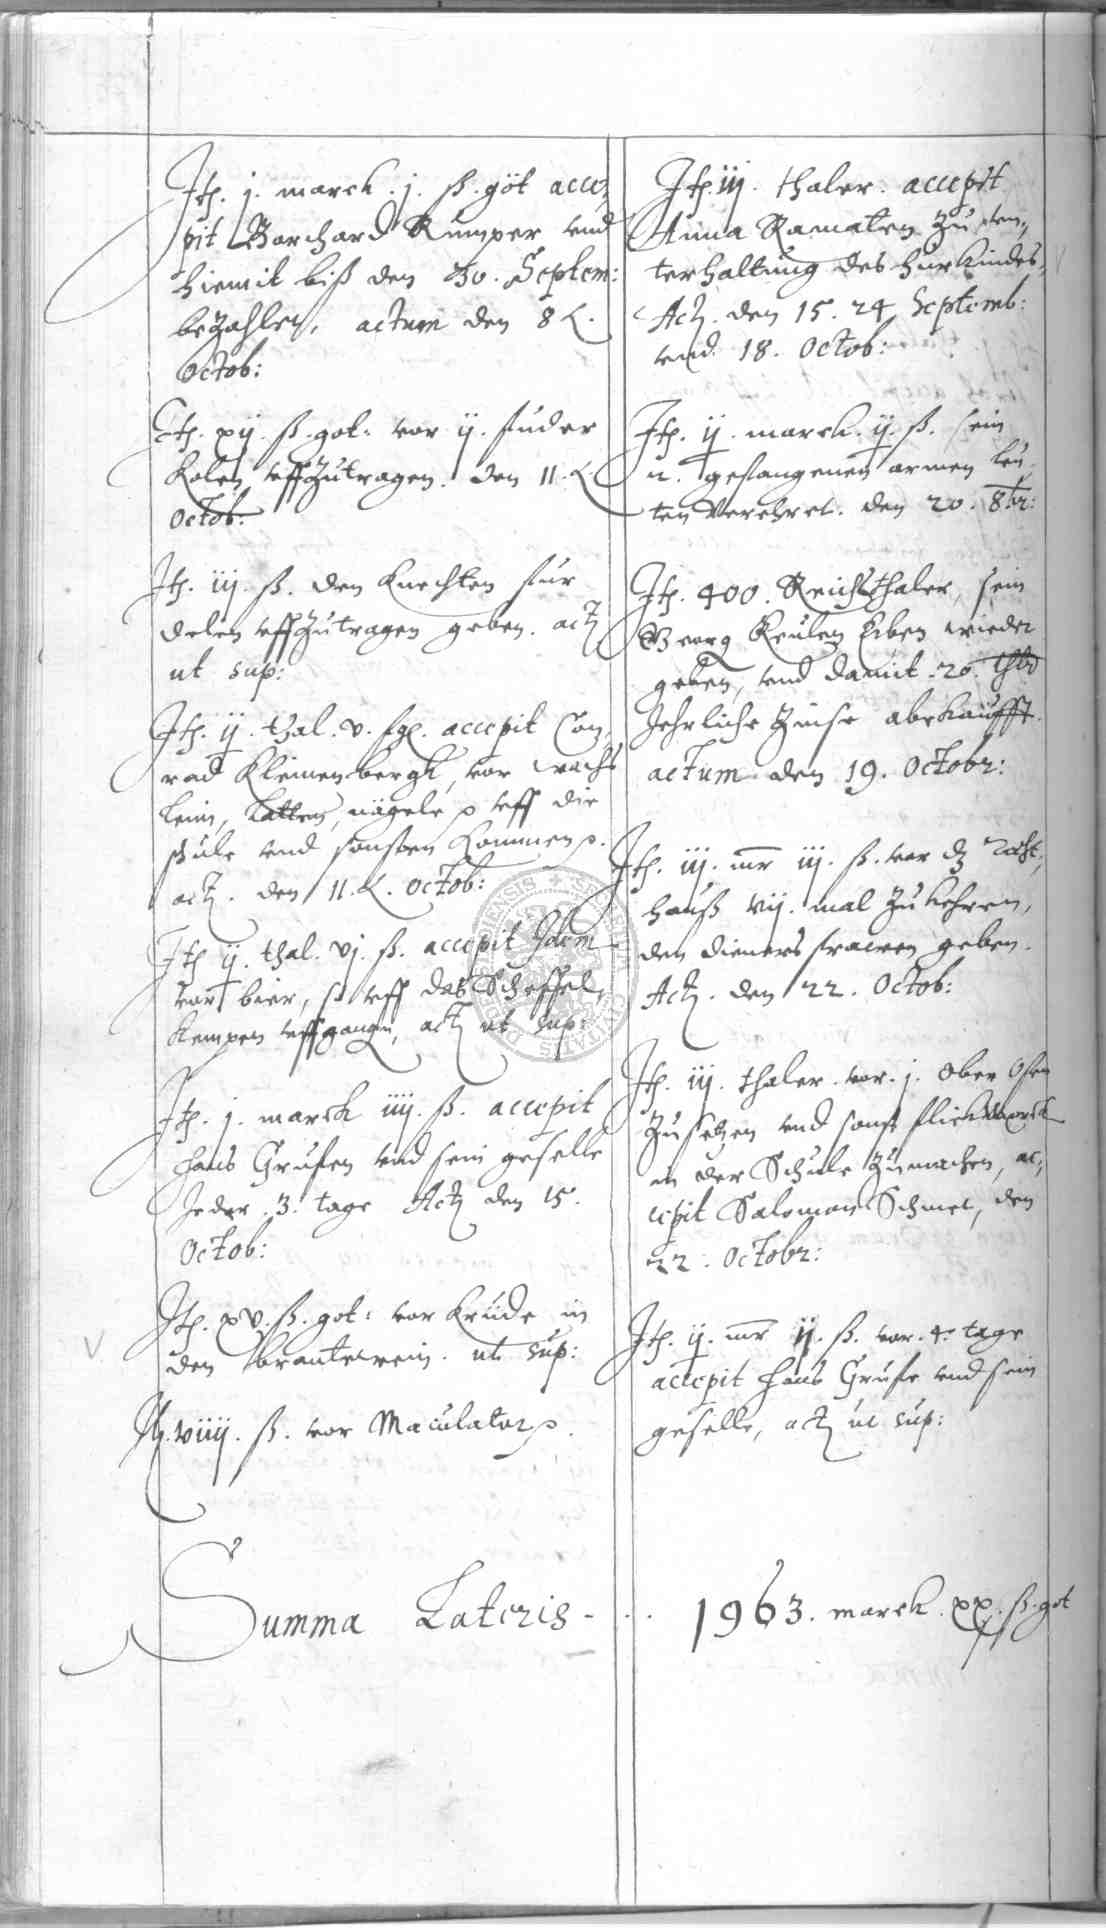 Itp. j. marck. j. ß. göt acce,
pit Borchard Kumper vnd
hiemit biß den 30. Septem:
bezahlet, actum den 8 t.
Octob:
Itp. xij. ß. got: vor ij. fuder
Kolen vffzutragen. den 11. t.
Octob:
Itp. iij. ß. den Knechten fur
delen vffzutragen geben. act
ut sup:
Itp. ij. thal. v. accepit Con,
rad Klimenbergk, vor
leim, Latten, nägele p vff die
schule vnd sonsten kommen p.
act. den 11. t. Octob:
Itp ij. thal. vj. ß. accepit Idem
vor bier, ß vff das Scheffel,
Kempen vffgangen, act ut sup:
Itp. j. marck iiij. ß. accepit
Hans Grusen vnd sein geselle
Jeder. 3. tage Act den 15.
Octob:
Itp. xv. ß. got: vor Krude in
den brantewein. ut sup:
Itp. viiij. ß. vor Maculator p.
Itp. iij. thaler. accepit
Anna Ramaten zu vn,
terhaltung des hurkindes,
Act. den 15. 24 Septemb:
vnd 18. Octob:
Itp. ij. marck. ij. ß. sein
n. gefangenen armen leu,
ten verehret. den 20. 8br:
Itp. 400. Reichsthaler, sein
Georg Keulen Erben wieder
geben, vnd damit 20. thlr
Jehrliche Zinse abekaufft.
actum den 19. Octobr:
Itp. iij. mr iij. ß. vor dz Raht,
hauß vij. mal zu kehren,
den dieners frawen geben.
Act. den 22. Octob:
Itp. iij. thaler. vor. j. Ober Ofen
zusetzen vnd sonst flickwerck
in der Schule zumachen, ac,
cepit Salomon Schmet, den
22. Octobr:
Itp. ij. mr ij. ß. vor. 4. tage
accepit Hans Gruse vnd sein
geselle, act ut sup:
Summa Lateris - . . 1963. marck. xx. ß. got